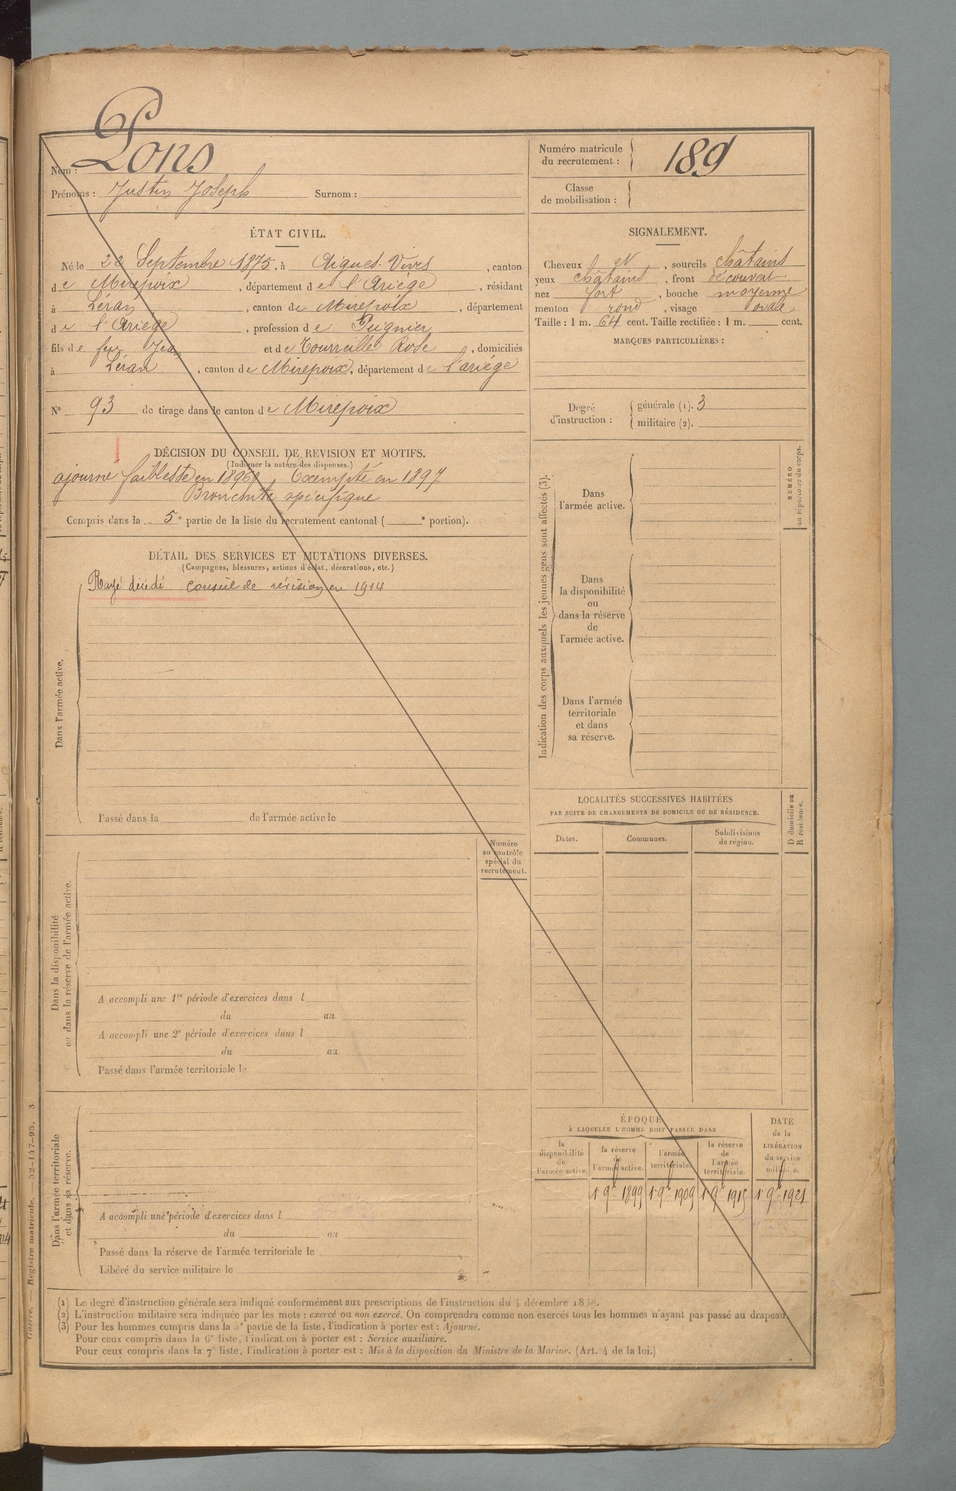 Nom : Pons
Prénoms : Justin Joseph Surnom :
Numéro matricule du recrutement : 189
Classe de mobilisation :
ÉTAT CIVIL.
Né le Septembre 1875, à Aigues-Vives, canton
de Mirepoix, département de l'Ariège, résidant
à Léran, canton de Mirepoix, département
de l'Ariège, profession de Peignier
fils de feu Jean et de Tourreille Rose, domiciliés
à Léran, canton de Mirepoix, département de l'ariège
N° 93 de tirage dans le canton de Mirepoix
SIGNALEMENT.
Cheveux et, sourcils châtains
yeux châtains, front découvert
nez fort, bouche moyenne
menton rond, visage ovale
Taille : 1 m. 64 cent. Taille rectifiée : 1 m. cent.
MARQUES PARTICULIÈRES :
Degré d'instruction : générale (1). 3
militaire (2).
DÉCISION DU CONSEIL DE REVISION ET MOTIFS.
(Indiquer la nature des dispenses.)
ajourné faiblesse en 1896, Exempté en 1897
Bronchite spécifique
Compris dans la 5e partie de la liste du recrutement cantonal ( e portion).
DÉTAIL DES SERVICES ET MUTATIONS DIVERSES.
(Campagnes, blessures, actions d'éclat, décorations, etc.)
Rayé décédé conseil de révision en 1914
Dans l'armée active.
Passé dans la de l'armée active le
Numéro au contrôle spécial du recrutement.
Dans la disponibilité
ou dans la réserve de l'armée active.
A accompli une 1re période d'exercices dans l
du au
A accompli une 2e période d'exercices dans l
du au
Passé dans l'armée territoriale le
Dans l'armée territoriale
et dans sa réserve.
A accompli une période d'exercices dans l
du au
Passé dans la réserve de l'armée territoriale le
Libéré du service militaire le
Indication des corps auxquels les jeunes gens sont affectés (3).
NUMÉRO
au répertoire du corps.
Dans
l'armée active.
Dans
la disponibilité
ou
dans la réserve
de
l'armée active.
Dans l'armée
territoriale
et dans
sa réserve.
LOCALITÉS SUCCESSIVES HABITÉES
PAR SUITE DE CHANGEMENTS DE DOMICILE OU DE RÉSIDENCE.
Dates. Communes. Subdivisions de région.
D domicile ou
R résidence.
ÉPOQUE
À LAQUELLE L'HOMME DOIT PASSER DANS
la disponibilité de l'armée active.
la réserve de l'armée active.
l'armée territoriale.
la réserve de l'armée territoriale.
DATE de la LIBÉRATION du service militaire.
1 9bre 1899 1 9bre 1909 1 9bre 1915 1 9bre 1921
(1) Le degré d'instruction générale sera indiqué conformément aux prescriptions de l'instruction du 4 décembre
(2) L'instruction militaire sera indiquée par les mots : exercé ou non exercé. On comprendra comme non exercés tous les hommes n'ayant pas passé au drapeau.
(3) Pour les hommes compris dans la partie de la liste, l'indication à porter est : Ajourné.
Pour ceux compris dans la 6e liste, l'indication à porter est : Service auxiliaire.
Pour ceux compris dans la 7e liste, l'indication à porter est : Mis à la disposition du Ministre de la Marine. (Art. 4 de la loi.)
Guerre. — Registre matricule. — 52-147-95. 3